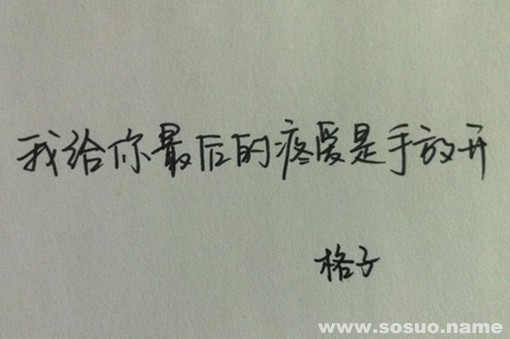 我给你最后的疼爱是手放开
格子
www.sosuo.name